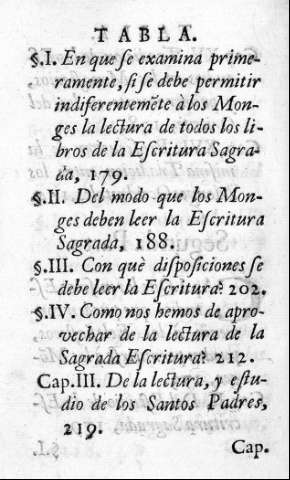 TABLA.
§.I. En que se examina prime-
ramente, si se debe permitir
indiferentemēte à los Mon-
ges la lectura de todos los li-
bros de la Escritura Sagra-
da, 179.
§.II. Del modo que los Mon-
ges deben leer la Escritura
Sagrada, 188.
§.III. Con què disposiciones se
debe leer la Escritura? 202.
§.IV. Como nos hemos de apro-
vechar de la lectura de la
Sagrada Escritura? 212.
Cap.III. De la lectura, y estu-
dio de los Santos Padres,
219.
Cap.